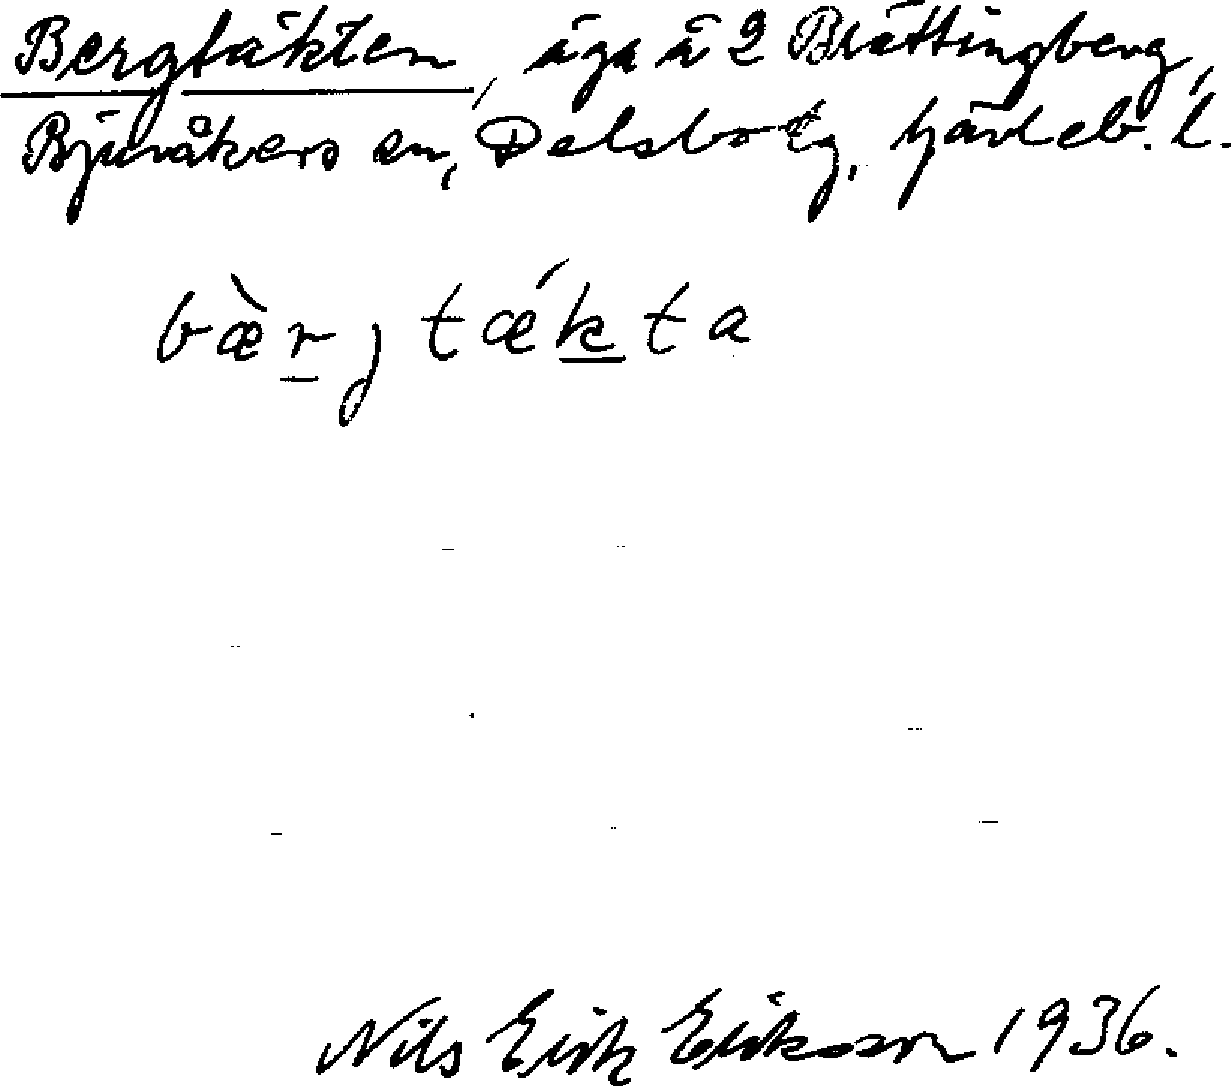 Bergtäkten, äga å 2 Brättingberg,
Bjuråkers sn, Delsbo tg, Gävleb. l.
bæ̀r̲jtǽk̲ta
Nils Erik Erikson 1936.